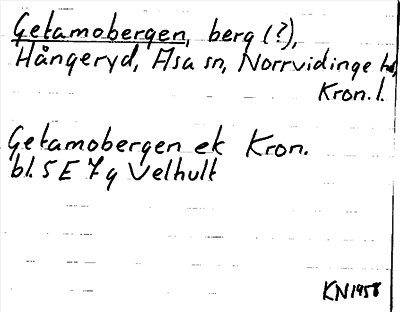 Getamobergen, berg (?),
Hångeryd, Asa sn, Norrvidinge hd,
Kron. l.
Getamobergen ek Kron.
bl. 5 E 7 g Velhult
KN 1958